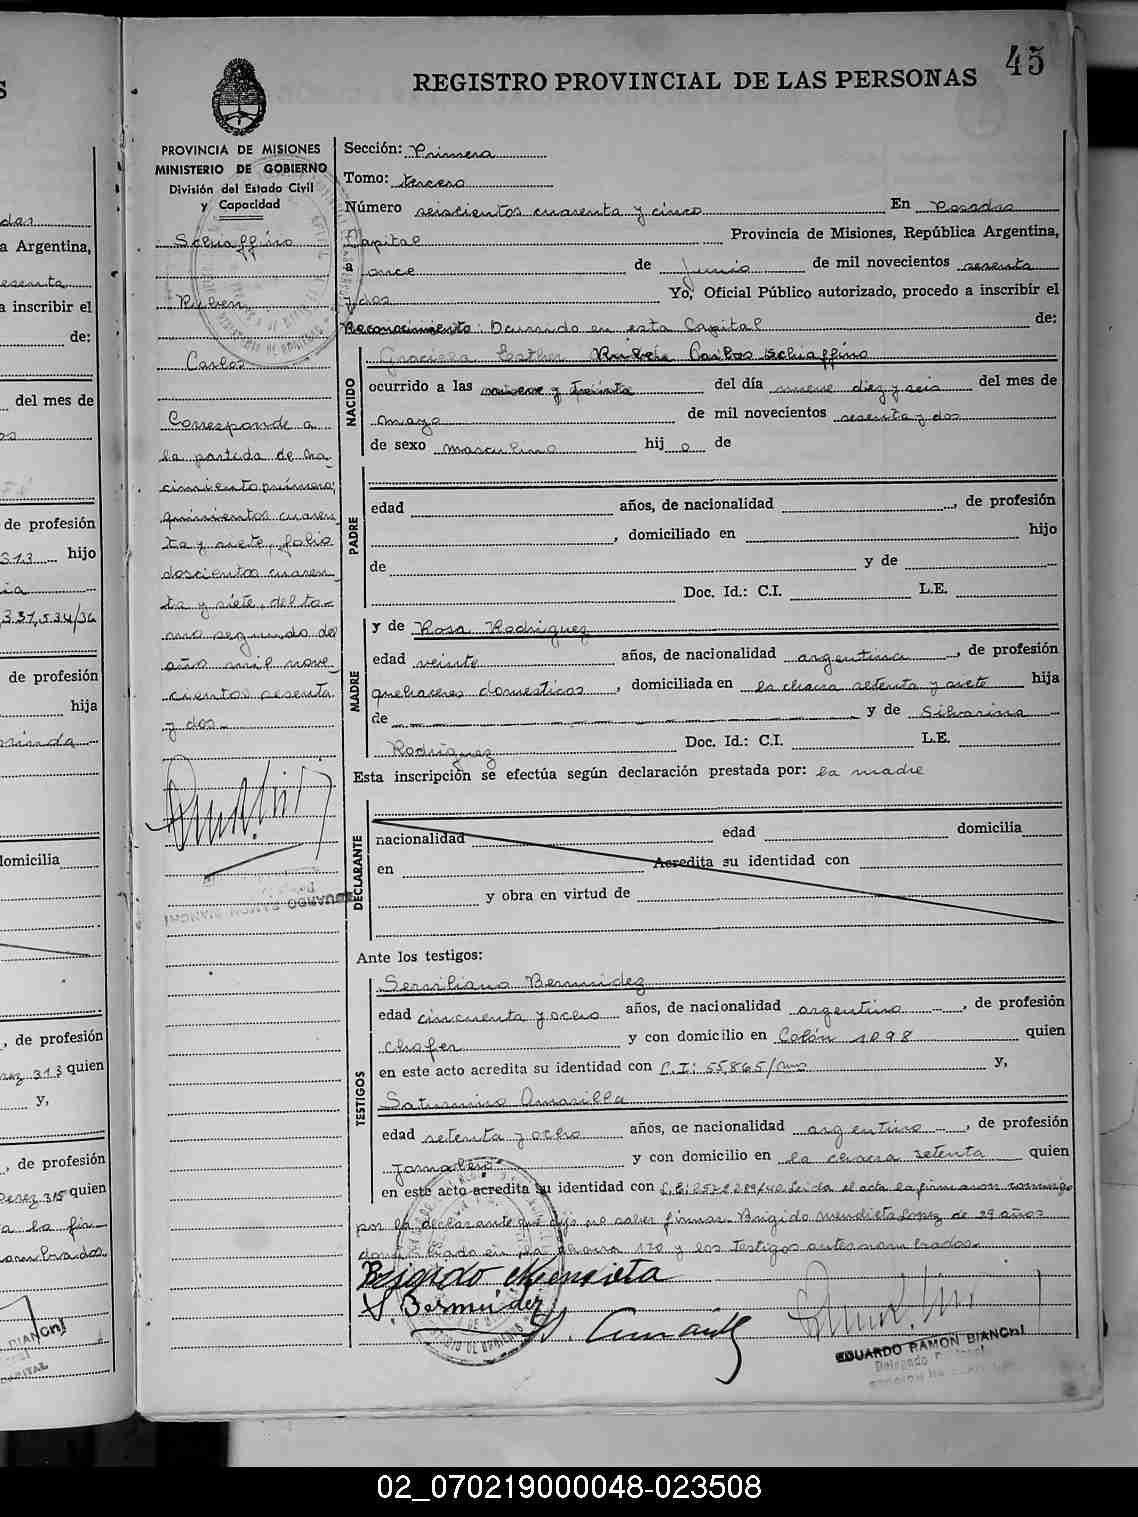 45
REGISTRO PROVINCIAL DE LAS PERSONAS
PROVINCIA DE MISIONES
MINISTERIO DE GOBIERNO
División del Estado Civil
y Capacidad
Schiaffino
Ruben
Carlos
Corresponde a
la partida de na-
cimiento número
quinientos cuaren-
ta y siete, folio
doscientos cuaren-
ta y siete, del to-
mo segundo del
año mil nove-
cientos sesenta
y dos.-
Sección: Primera
Tomo: tercero
Número seiscientos cuarenta y cinco En Posadas
Capital Provincia de Misiones, República Argentina,
a once de Junio de mil novecientos sesenta
y dos Yo, Oficial Público autorizado, procedo a inscribir el
Reconocimiento: Ocurrido en esta Capital de:
NACIDO
Graciela Esther Rubén Carlos Schiaffino
ocurrido a las nueve y treinta del día nueve diez y seis del mes de
mayo de mil novecientos sesenta y dos
de sexo masculino hij o de
PADRE
edad años, de nacionalidad , de profesión
, domiciliado en hijo
de y de
Doc. Id.: C.I. L.E.
MADRE
y de Rosa Rodriguez
edad veinte años, de nacionalidad argentina , de profesión
quehaceres domesticos , domiciliada en la chacra setenta y siete hija
de y de Silvarina
Rodriguez Doc. Id.: C.I. L.E.
Esta inscripción se efectúa según declaración prestada por: la madre
DECLARANTE
nacionalidad edad domicilia
en Acredita su identidad con
y obra en virtud de
Ante los testigos:
TESTIGOS
Serviliano Bermudez
edad cincuenta y ocho años, de nacionalidad argentino , de profesión
chofer y con domicilio en Colón 1098 quien
en este acto acredita su identidad con C.I: 55.865/ y,
Saturnino Amarilla
edad setenta y ocho años, de nacionalidad argentino , de profesión
Jornalero y con domicilio en la chacra setenta quien
en este acto acredita su identidad con Leida el acta la firmaron conmigo
por la declarante que dijo no saber firmar Brigido Mendieta Lopez de 29 años
domiciliado en la chacra 170 y los testigos antes nombrados.
Brigido Mendieta
S. Bermudez
EDUARDO RAMON BIANCHI
Delegado
a Argentina,
a inscribir el
de:
del mes de
de profesión
313 hijo
de profesión
hija
domicilia
, de profesión
313 quien
y,
, de profesión
Perez 315 quien
BIANCHI
02_070219000048-023508